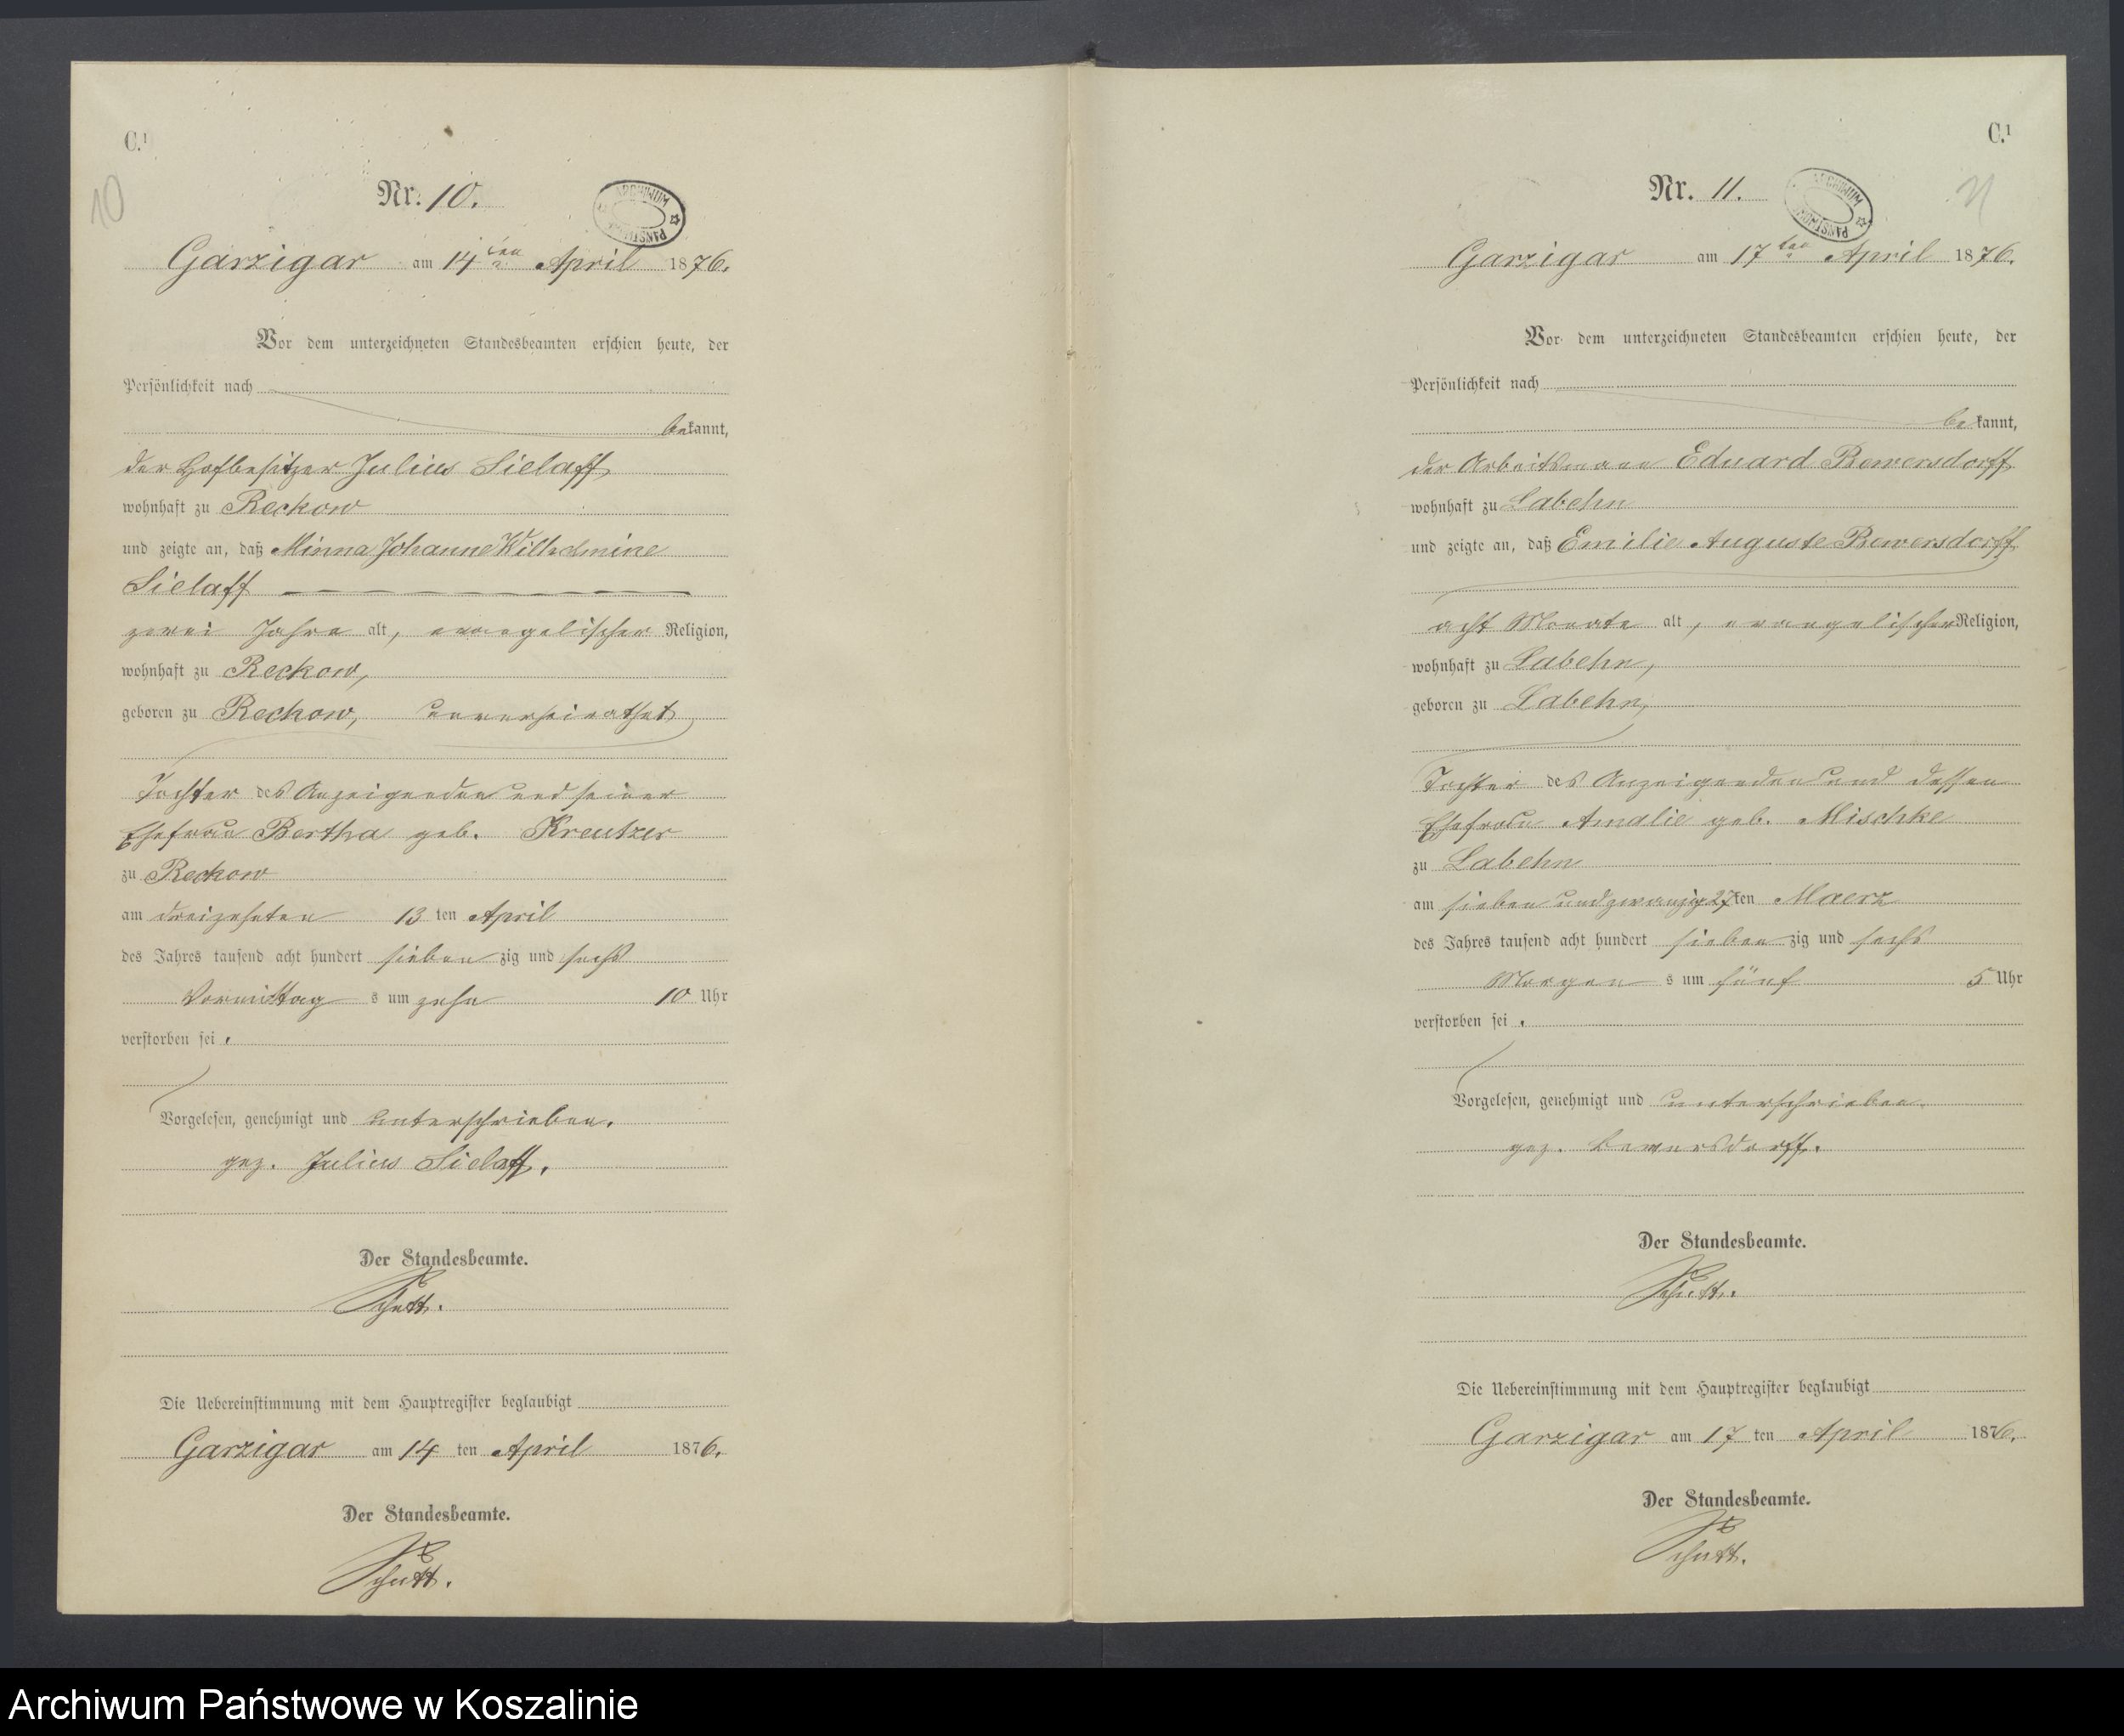 C.1
10
Nr. 10.
ARCHIWUM PAŃSTWOWE
Garzigar am 14ten April 1876.
Vor dem unterzeichneten Standesbeamten erschien heute, der
Persönlichkeit nach
bekannt,
der Hofbesitzer Julius Sielaff
wohnhaft zu Reckow
und zeigte an, daß Minna Johanne Wilhelmine
Sielaff
zwei Jahre alt, evangelischer Religion,
wohnhaft zu Reckow,
geboren zu Reckow, unverheirathet
Tochter des Anzeigenden und seiner
Ehefrau Bertha geb. Kreutzer
zu Reckow
am dreizehnten 13 ten April
des Jahres tausend acht hundert sieben zig und sechs
Vormittag s um zehn 10 Uhr
verstorben sei.
Vorgelesen, genehmigt und unterschrieben.
gez. Julius Sielaff.
Der Standesbeamte.
Schütt.
Die Uebereinstimmung mit dem Hauptregister beglaubigt
Garzigar am 14 ten April 1876.
Der Standesbeamte.
Schütt.
C.1
11
Nr. 11.
ARCHIWUM PAŃSTWOWE
Garzigar am 17ten April 1876.
Vor dem unterzeichneten Standesbeamten erschien heute, der
Persönlichkeit nach
bekannt,
der Arbeitsmann Eduard Bewersdorff
wohnhaft zu Labehn
und zeigte an, daß Emilie Auguste Bewersdorff
acht Monate alt, evangelischer Religion,
wohnhaft zu Labehn,
geboren zu Labehn,
Tochter des Anzeigenden und dessen
Ehefrau Amalie geb. Mischke
zu Labehn
am sieben und zwanzig 27ten Maerz
des Jahres tausend acht hundert sieben zig und sechs
Morgen s um fünf 5 Uhr
verstorben sei.
Vorgelesen, genehmigt und unterschrieben.
gez. Bewersdorff.
Der Standesbeamte.
Schütt.
Die Uebereinstimmung mit dem Hauptregister beglaubigt
Garzigar am 17 ten April 1876.
Der Standesbeamte.
Schütt.
Archiwum Państwowe w Koszalinie